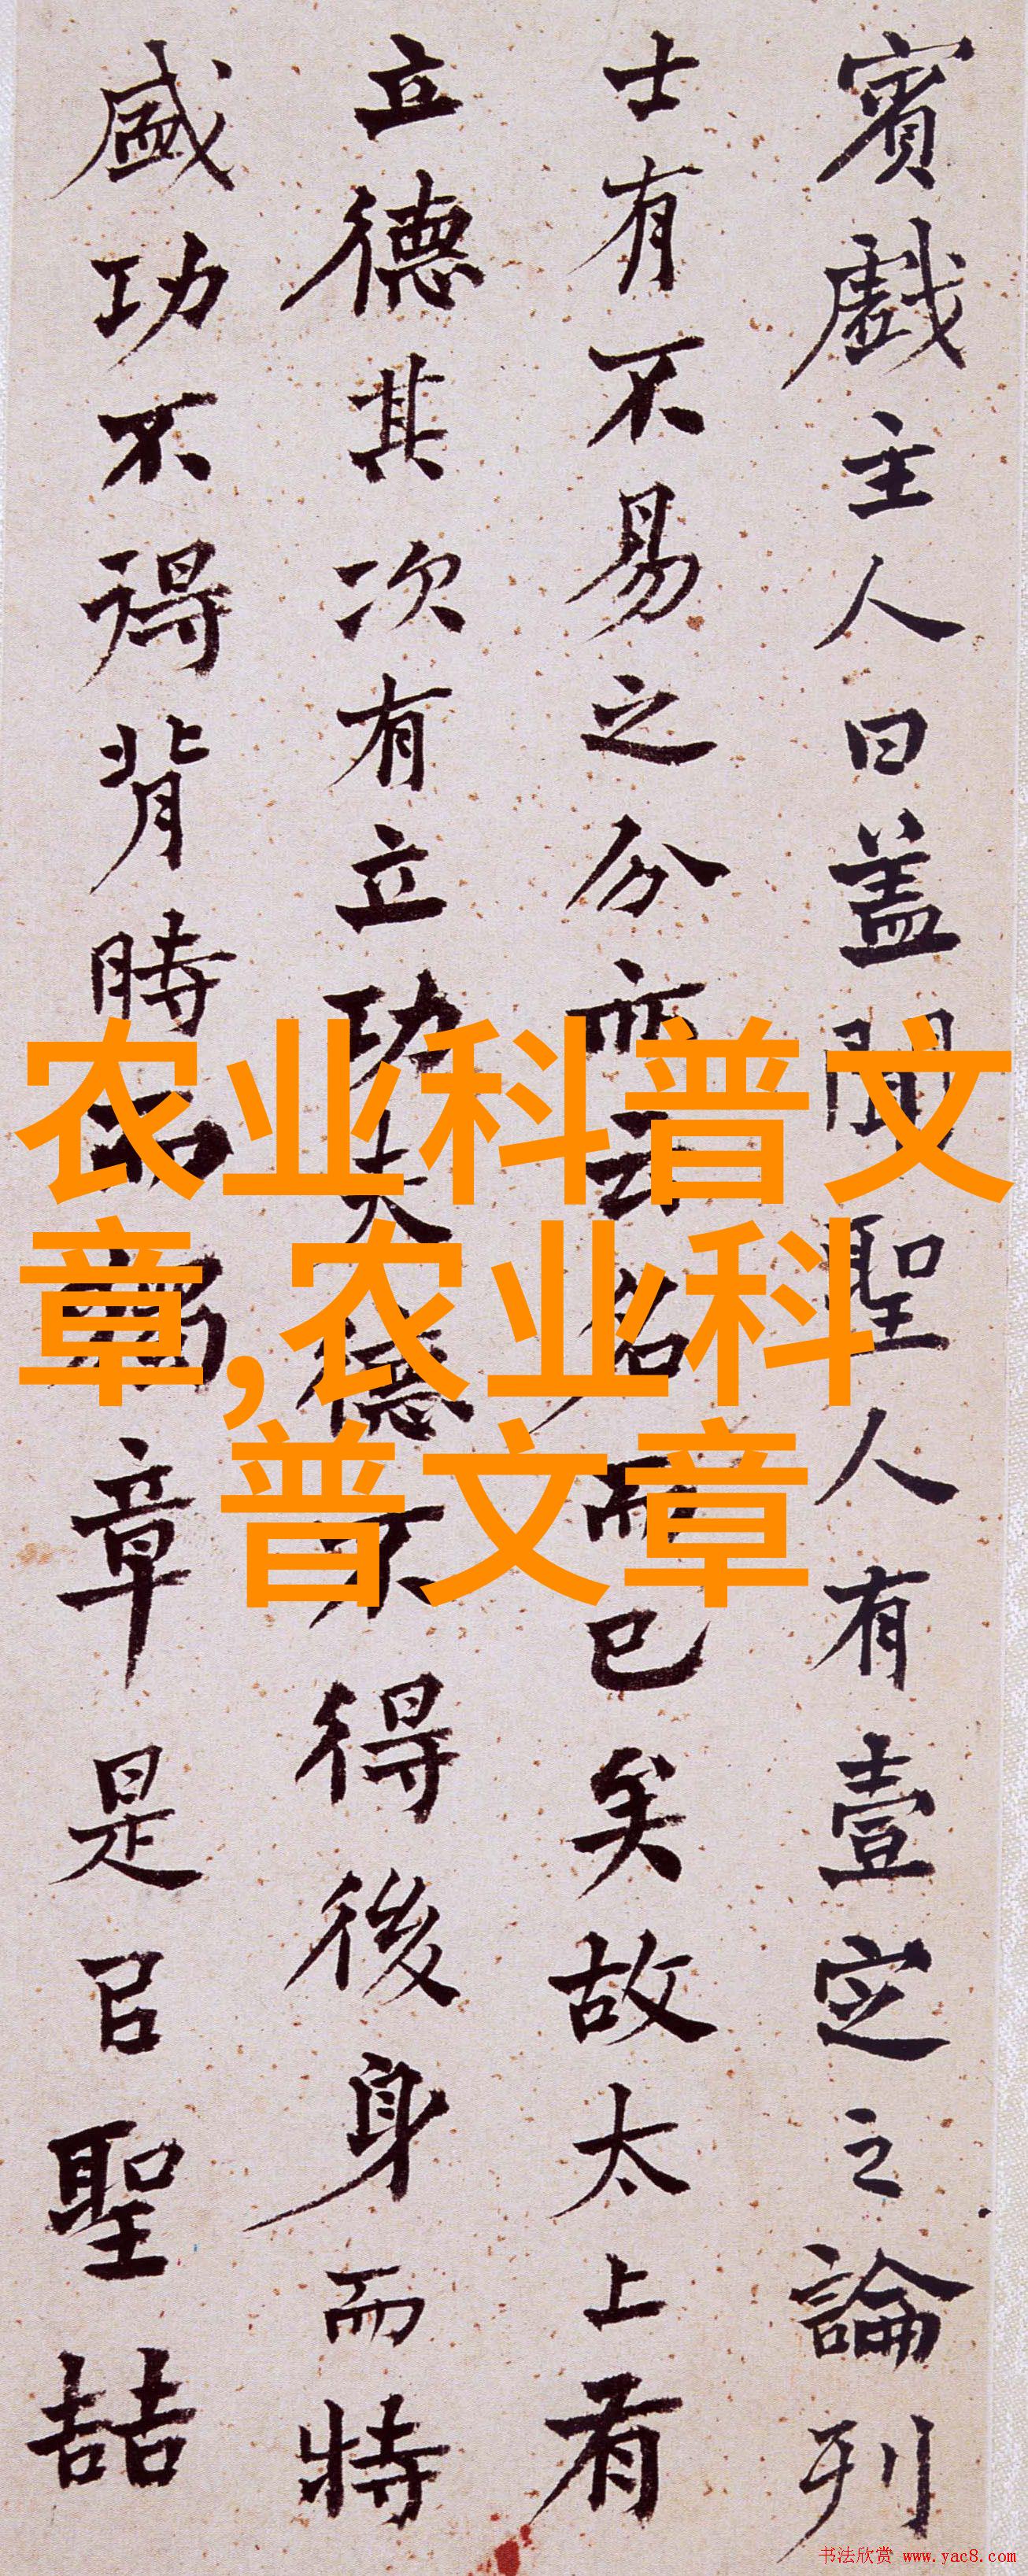 賓戲主人曰盖聞聖人有壹定之論列
士有不易之分亦云名而已矣故太上有
立德其次有立功夫德不得後身而特
盛功不得背時而獨章是㠯聖喆
农业科普文
章,农业科
普文章
书法欣赏 www.yac8.com